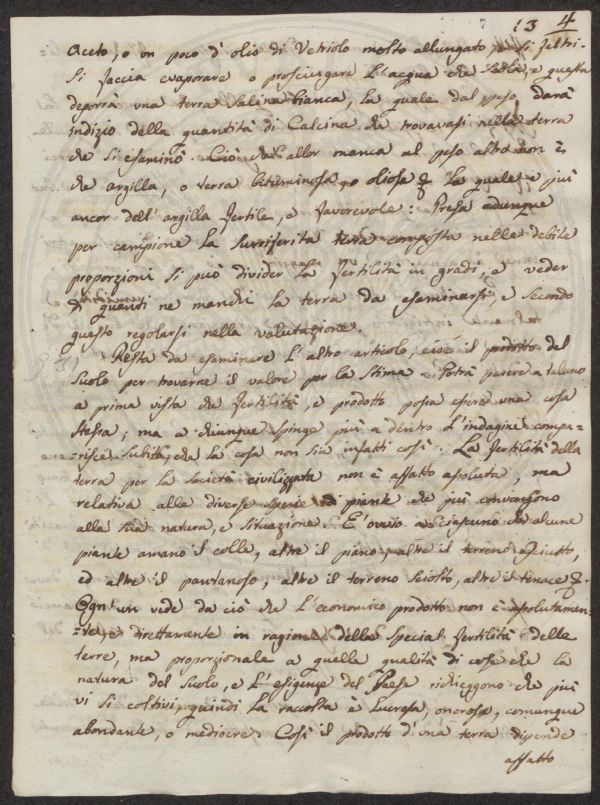 13 4
Aceto, o un poco d' olio di Vetriolo molto allungato, e si feltri.
Si faccia evaporare o prosciugare l'acqua che scola, e questa
deporrà una terra salina bianca, la quale dal peso darà
indizio della quantità di Calcina che trovavasi nella terra
che si esaminò. Ciò che allor manca al peso altro non è
che argilla, o terra bituminosa, o oliosa & la quale è più
ancor dell' argilla fertile, e favorevole: Presa adunque
per campione la surriferita terra composta nelle debite
proporzioni si può divider la fertilità in gradi, e veder
quanti ne manchi la terra da esaminarsi, e secondo
questo regolarsi nella valutazione.
Resta da esaminare l' altro articolo, cioè il prodotto del
suolo per trovarne il valore per la Stima. Potrà parere a taluno
a prima vista che fertilità, e prodotto possa essere una cosa
stessa; ma a chiunque spinge più a dentro l'indagini compa=
=risce subito, che la cosa non sia infatti così. La fertilità della
terra per la società civilizzata non è affatto assoluta, ma
relativa alle diverse specie di piante che più convengono
alla sua natura, e situazione. È ovvio a ciascuno che alcune
piante amano il colle, altre il piano, altre il terreno asciutto,
ed altre il pantanoso, altre il terreno sciolto, altre il tenace &.
Ogn' un vede da ciò che l'economico prodotto non è assolutamen=
=te, e direttamente in ragione della special fertilità delle
terre, ma proporzionale a quella qualità di cose che la
natura del suolo, e l'esigenze del Paese richieggono che più
vi si coltivi, quindi la raccolta è lucrosa, onerosa, comunque
abondante, o mediocre. Così il prodotto d' una terra dipende
affatto